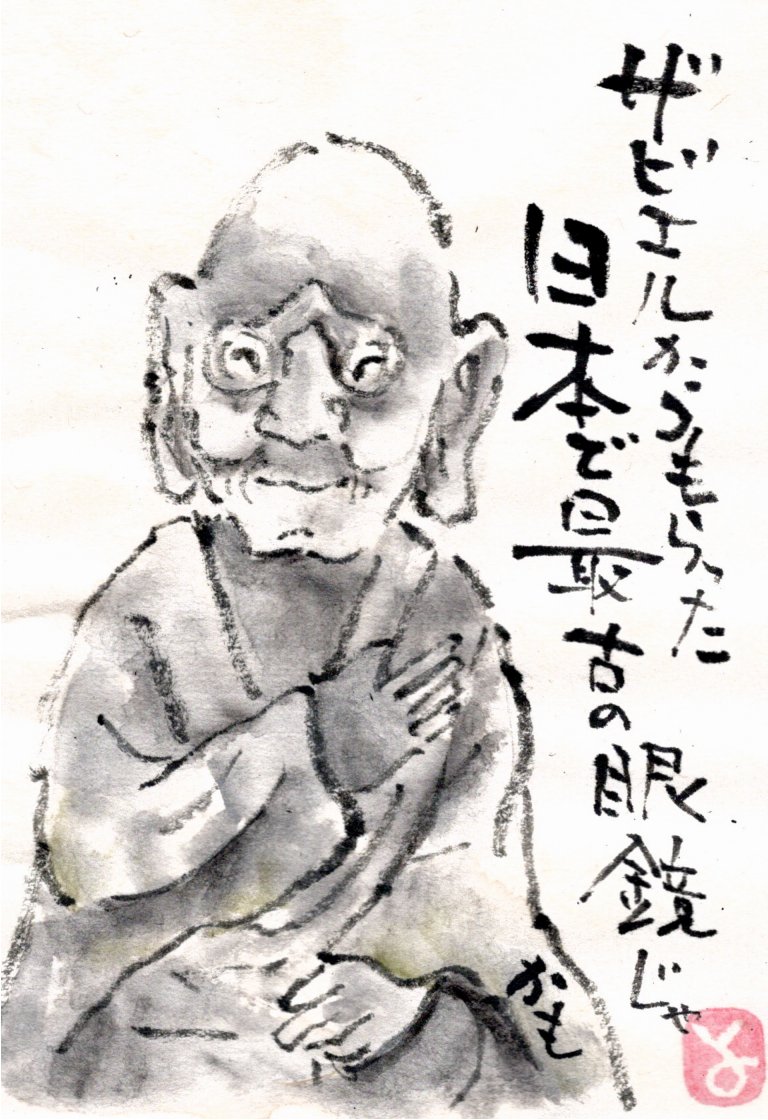 ザビエルからもらった
日本で最古の眼鏡じゃ